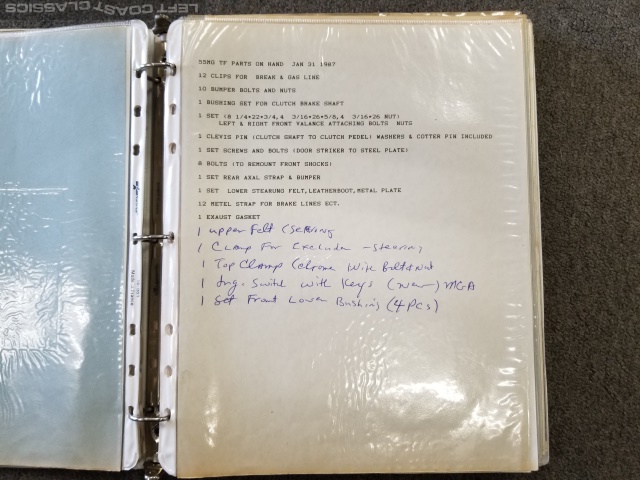 LEFT COAST CLASSICS
55MG TF PARTS ON HAND JAN 31 1987
12 CLIPS FOR BREAK & GAS LINE
10 BUMPER BOLTS AND NUTS
1 BUSHING SET FOR CLUTCH BRAKE SHAFT
1 SET (8 1/4*22*3/4,4 3/16*26*5/8,4 3/16*26 NUT)
LEFT & RIGHT FRONT VALANCE ATTACHING BOLTS NUTS
1 CLEVIS PIN (CLUTCH SHAFT TO CLUTCH PEDEL) WASHERS & COTTER PIN INCLUDED
1 SET SCREWS AND BOLTS (DOOR STRIKER TO STEEL PLATE)
8 BOLTS (TO REMOUNT FRONT SHOCKS)
1 SET REAR AXAL STRAP & BUMPER
1 SET LOWER STEARUNG FELT,LEATHENBOOT,METAL PLATE
12 METEL STRAP FOR BRAKE LINES ECT.
1 EXAUST GASKET
1 upper Felt (Stearing
1 Clamp For Excluder - Stearing
1 Top Clamp (chrome With Bolt & Nut
1 Ing. Switch with Keys (new) MGA
1 Set Front Lower Bushins (4 Pcs)